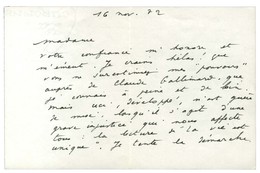 16 nov. 72
Madame
Votre confiance m'honore et
m'émeut. Je crains hélas! que
vous ne surestimiez mes "pouvoirs"
auprès de Claude Gallimard que
je connais à peine et de loin.
Mais ceci, développé, n'est guère
de mise. lorsqu'il s'agit d'une
grave injustice, qui nous affecte
tous à la lecture de "La vie est
unique". Je tente la démarche